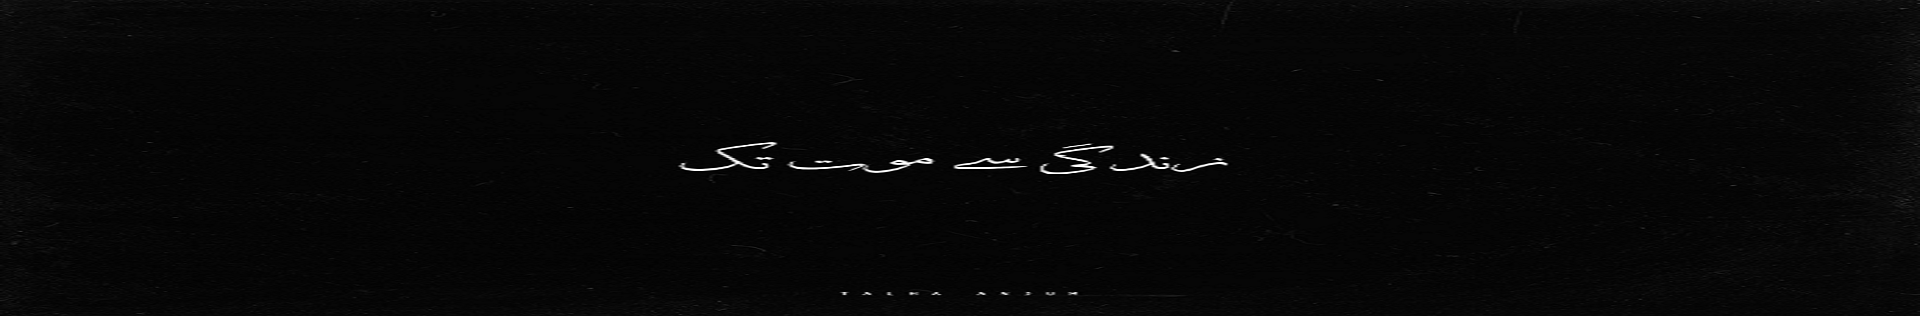 زندگی سے موت تک
TALHA ANJUM